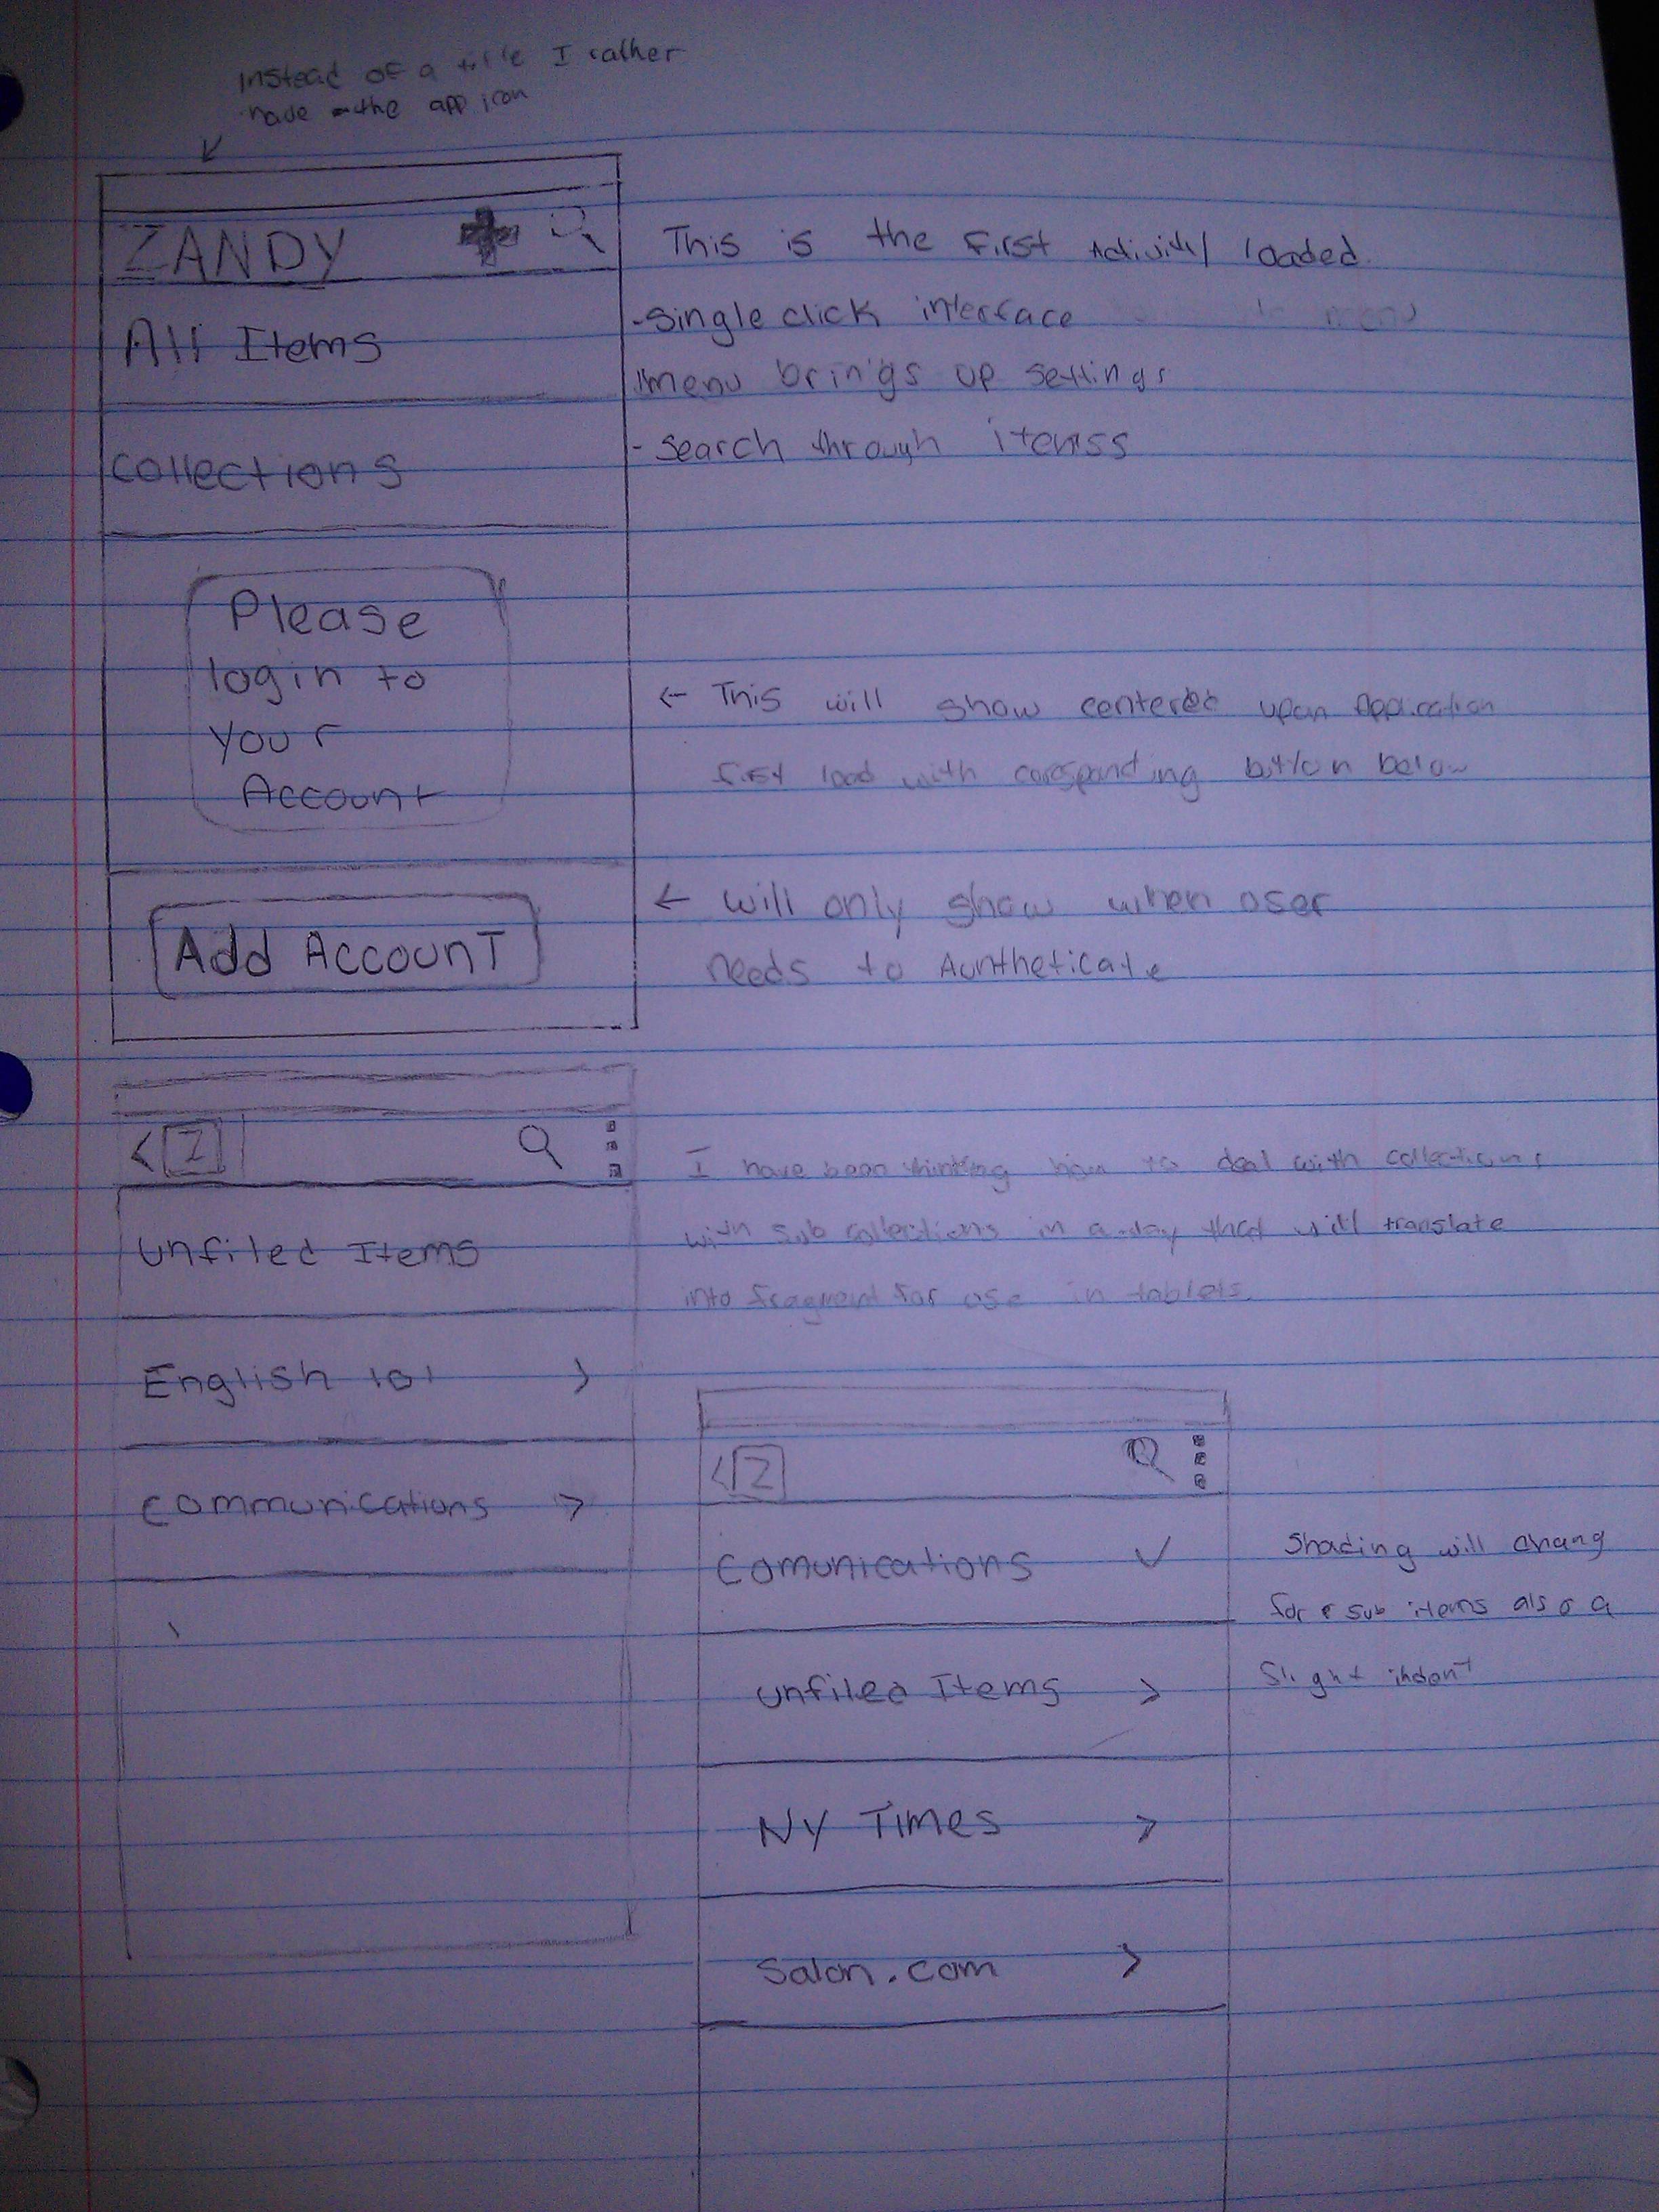 Instead of a title I rather
have the app icon
ZANDY
This is the first Activity loaded.
All Items
-Single click interface
menu
menu brings up settings
- Search through itemss
collections
Please
login to
your
Account
← This will show centered upon Application
first load with coresponding button below
Add Account
← will only show when user
needs to Auntheticate
< Z
I have been thinking how to deal with collections
with sub collections in a way that will translate
into fragment for use in tablets.
unfiled Items
English 101 >
communications >
< Z
comunications ✓
Shading will chang
for sub items also a
slight indent
unfiled Items >
NY Times >
Salon.com >